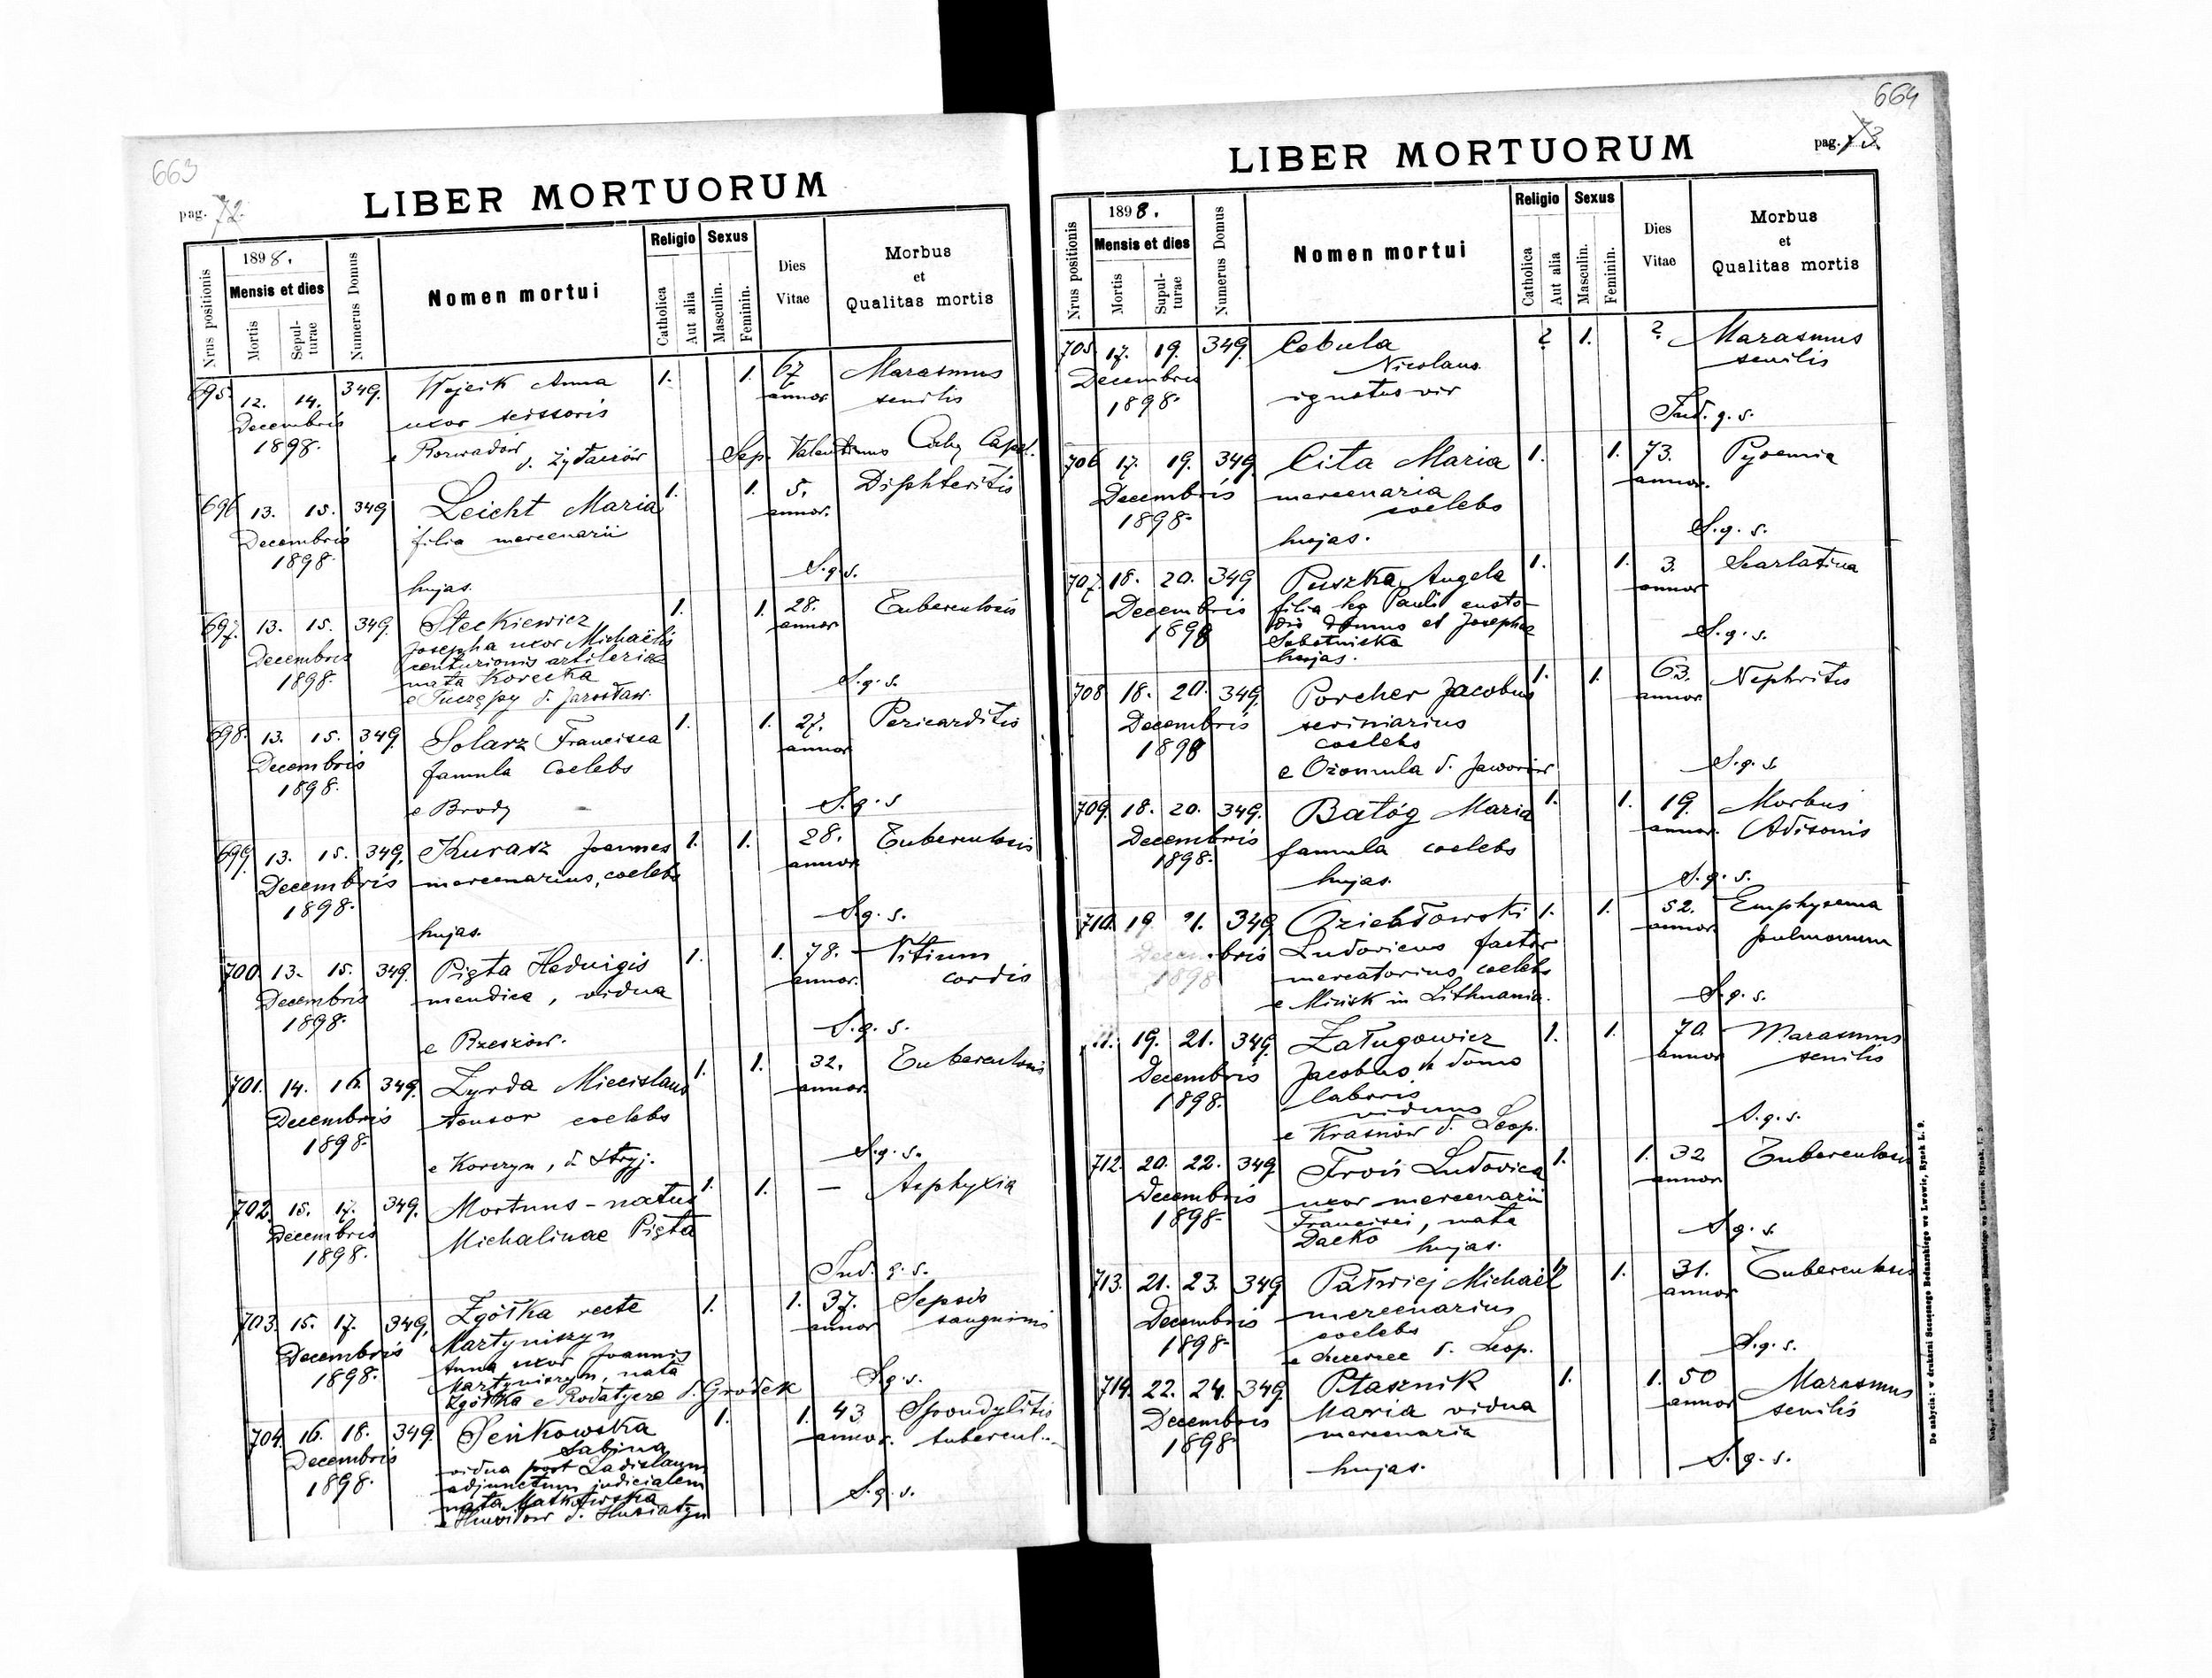 663
pag. 72.
LIBER MORTUORUM
Nrus positionis
1898.
Mensis et dies
Mortis
Sepulturae
Numerus Domus
Nomen mortui
Religio
Catholica
Aut alia
Sexus
Masculin.
Feminin.
Dies Vitae
Morbus et Qualitas mortis
695 12. 14. 349. Wojcik Anna 1. 1. 67 Marasmus
Decembris uxor scissoris annor senilis
1898. e Rozwadów d. Żydaczów Sep. Valentinus Capel.
696 13. 15. 349 Leicht Maria 1. 1. 5. Diphteritis
Decembris filia mercenarii annor.
1898. hujas. S.g.s.
697. 13. 15. 349. Steckiewicz 1. 1. 28. Tuberculosis
Josepha uxor Michaëlis annor
Decembris centurionis artileriae
1898. nata Korecka S.g.s.
e Tuczępy d. Jarosław
698. 13. 15. 349. Solarz Francisca 1. 1. 27. Pericarditis
Decembris famula coelebs annor
1898. e Brody S.g.s
699. 13. 15. 349. Kurasz Joannes 1. 1. 28. Tuberculosis
Decembris mercenarius, coelebs annor
1898. hujas. S.g.s.
700 13. 15. 349. Pięta Hedvigis 1. 1. 78. Vitium
Decembris mendica, vidua annor. cordis
1898. e Rzeszów. S.g.s.
701. 14. 16. 349. Zyrda Miecislaus 1. 1. 32. Tuberculosis
Decembris tonsor coelebs annor
1898. e Korczyn, d. Stryj. S.g.s.
702. 15. 17. 349. Mortuus-natus 1. 1. — Asphyxia
Decembris Michalinae Pięta
1898. Jud. g.s.
703. 15. 17. 349. Zgółka recte 1. 1. 37. Sepsis
Decembris Martyniszyn annor sanguinis
1898. Anna uxor Joannis
Martyniszyn, nata S.g.s.
Zgółka e Rodatycze d. Gródek
704. 16. 18. 349. Seńkowska 1. 1. 43 Spondylitis
Decembris Sabina annor. tubercul.
1898. vidua post Ladislaum
adjunctum judicialem
nata S.g.s.
d. Husiatyn
664
pag. 73
LIBER MORTUORUM
Nrus positionis
1898.
Mensis et dies
Mortis
Supulturae
Numerus Domus
Nomen mortui
Religio
Catholica
Aut alia
Sexus
Masculin.
Feminin.
Dies Vitae
Morbus et Qualitas mortis
705 17. 19. 349. Cebula ? 1. ? Marasmus
Decembris Nicolaus senilis
1898. ignotus vir Jud. g.s.
706 17. 19. 349 Cita Maria 1. 1. 73. Pyoemia
Decembris mercenaria annor.
1898. coelebs
hujas. S.g.s.
707. 18. 20. 349 Puszka Angela 1. 1. 3. Scarlatina
Decembris filia leg Pauli custo- annor
1898 dis domus et Josephae
Sobotniska S.g.s.
hujas.
708 18. 20. 349. Porcher Jacobus 1. 1. 63. Nephritis
Decembris scriniarius annor
1898 coelebs
e Ożomula d. Jaworów S.g.s
709. 18. 20. 349. Batóg Maria 1. 1. 19. Morbus
Decembris famula coelebs annor. Adisonis
1898. hujas. S.g.s.
710. 19. 21. 349 1. 1. 52. Emphysema
Decembris Ludovicus factor annor pulmonum
1898 mercatorius, coelebs
e Mińsk in Lithuania. S.g.s.
11. 19. 21. 349. Załugowicz 1. 1. 70. Marasmus
Decembris Jacobus domo annor senilis
1898. laboris
viduus
e Krasnów d. Leop. S.g.s.
712. 20. 22. 349 Froiś Ludovica 1. 1. 32 Tuberculosis
Decembris uxor mercenarii annor
1898. Francisci, nata
Dacko hujas. S.g.s.
713. 21. 23. 349 Michaël 1. 1. 31. Tuberculosis
Decembris mercenarius annor
1898. coelebs
e d. Leop. S.g.s.
714. 22. 24. 349 Ptasznik 1. 1. 50 Marasmus
Decembris Maria vidua annor senilis
1898. mercenaria
hujas. S.g.s.
De nabycia: w drukarni Szczęsnego Bednarskiego we Lwowie, Rynek L. 9.